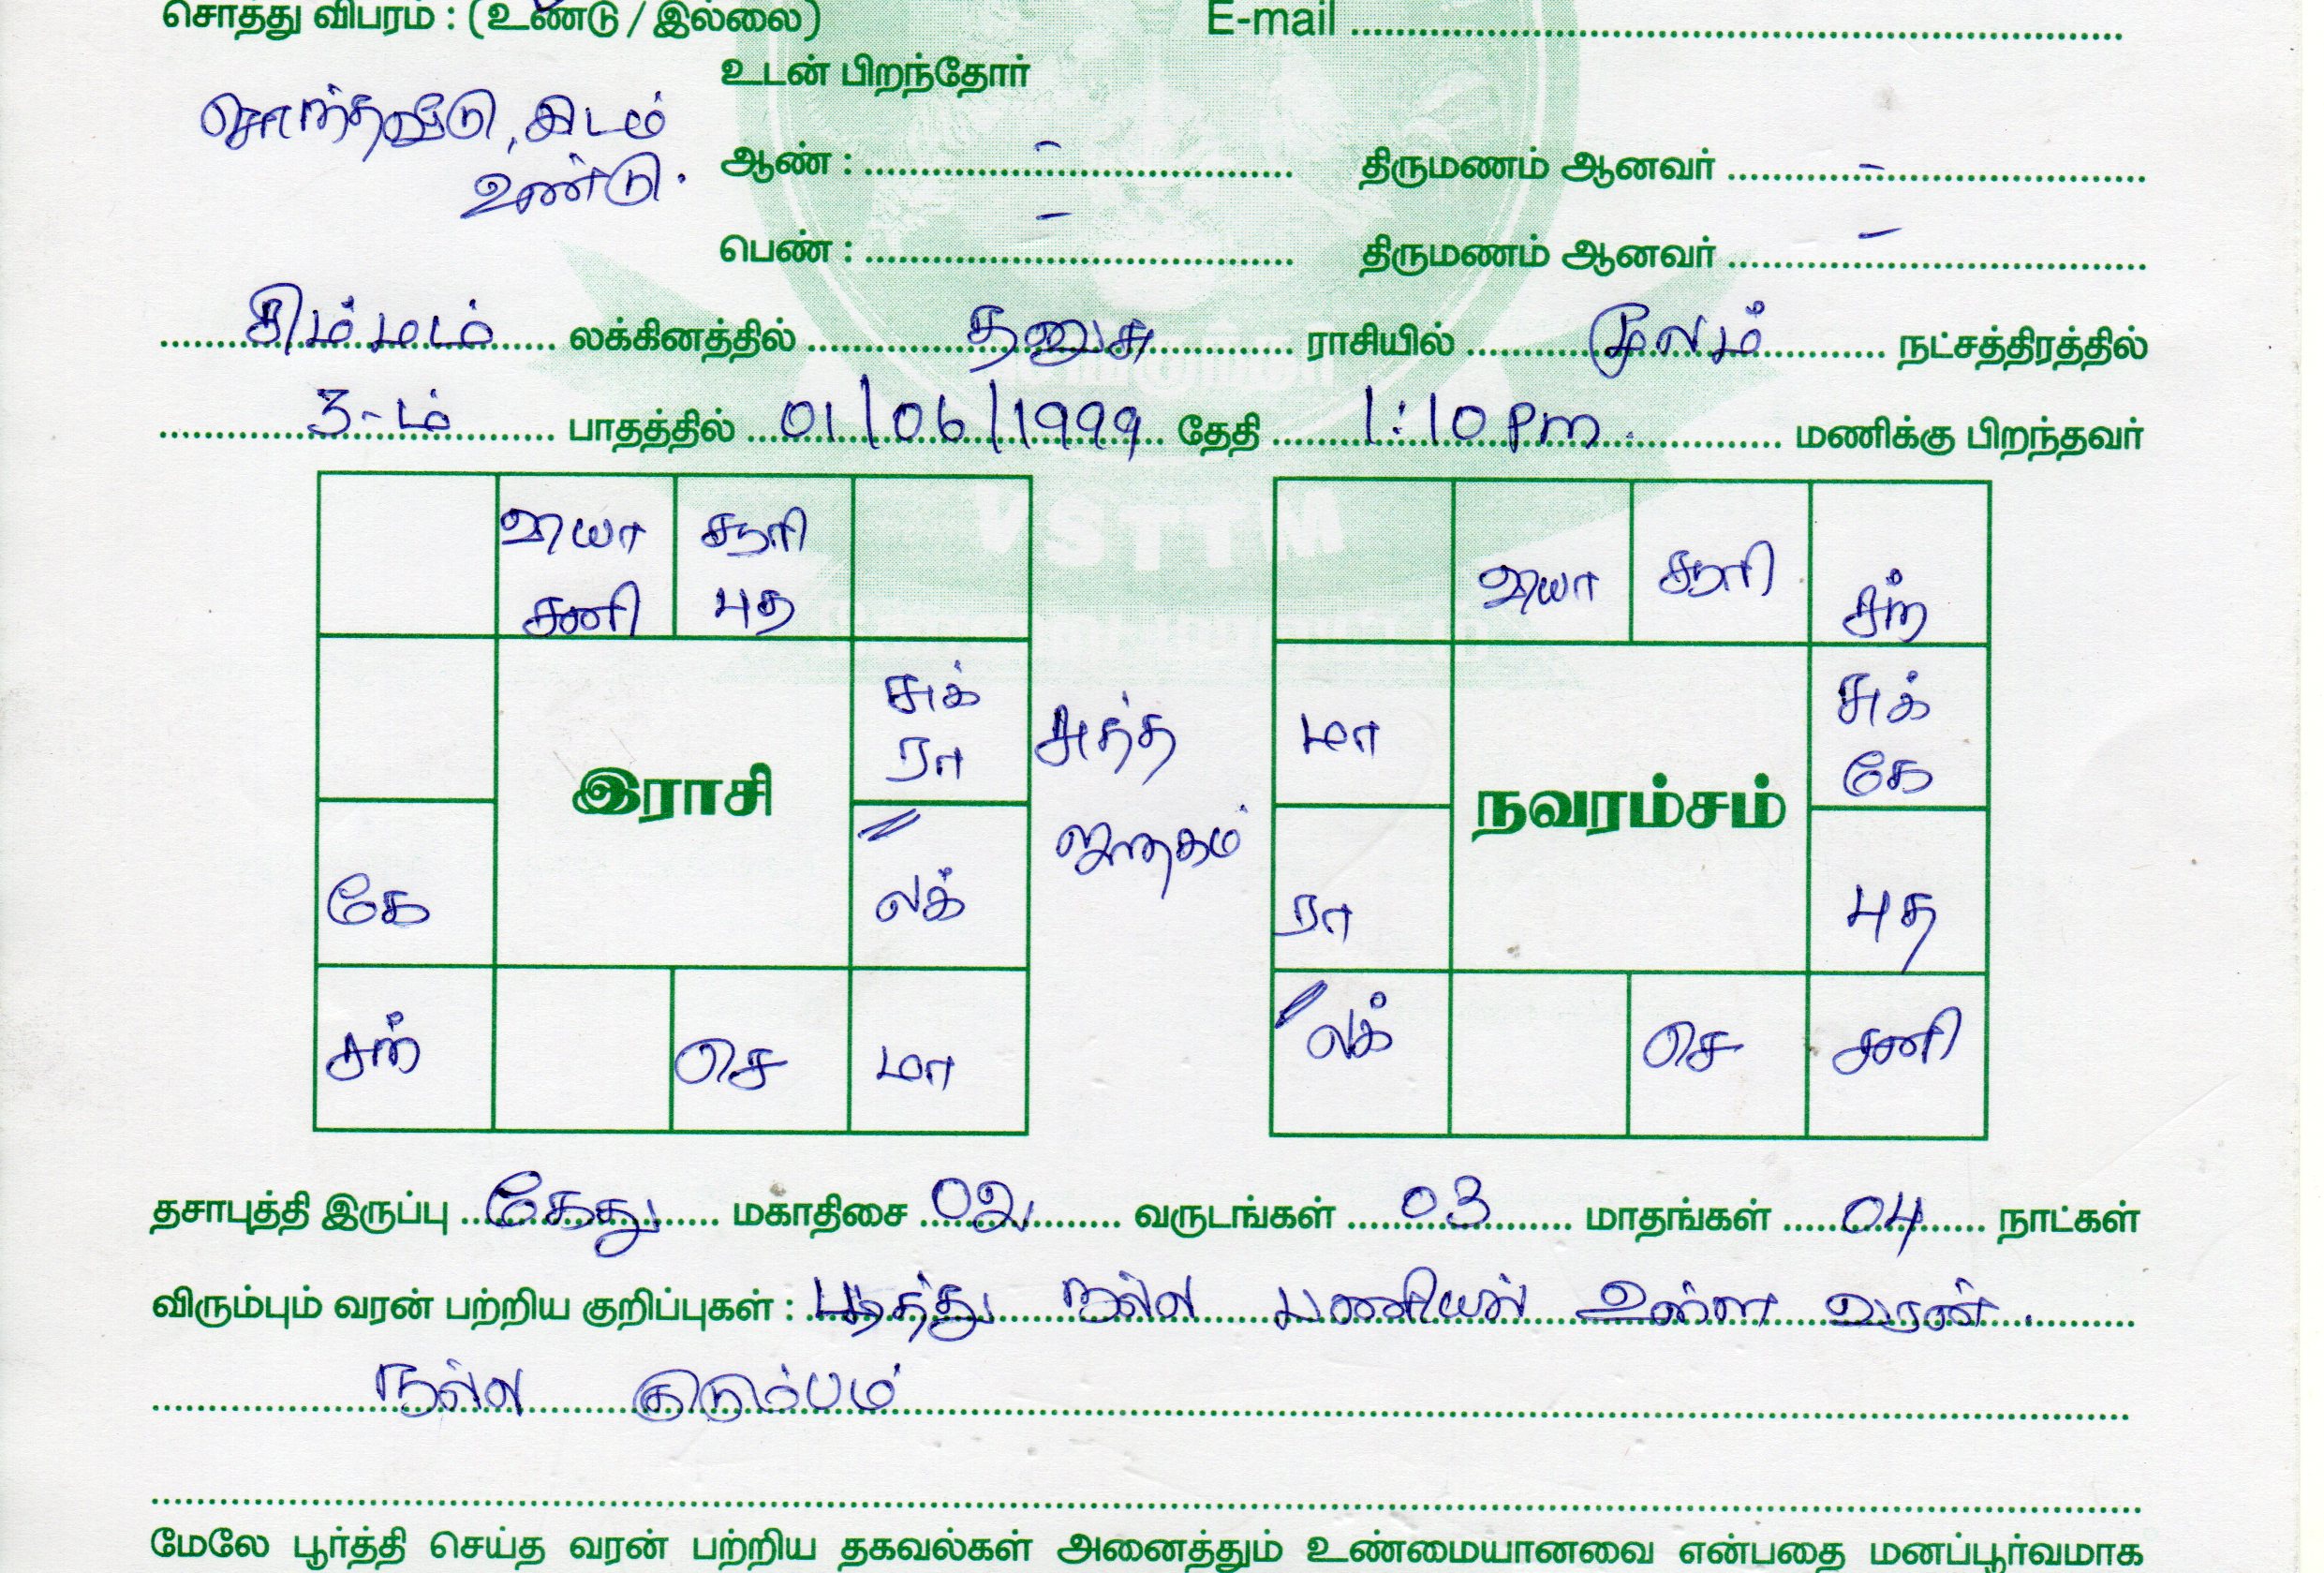 சொத்து விபரம் : (உண்டு / இல்லை) E-mail
உடன் பிறந்தோர்
சொந்தவீடு, இடம்
உண்டு.
ஆண் : - திருமணம் ஆனவர் -
பெண் : - திருமணம் ஆனவர் -
சிம்மம் லக்கினத்தில் தனுசு ராசியில் மூலம் நட்சத்திரத்தில்
3-ம் பாதத்தில் 01/06/1999 தேதி 1:10 Pm. மணிக்கு பிறந்தவர்
வியா சூரி
சனி புத
சுக்
ரா
இராசி
கே லக்
சந் செ மா
சுத்த
ஜாதகம்
வியா சூரி சந்
மா சுக்
கே
நவரம்சம்
ரா புத
லக் செ சனி
தசாபுத்தி இருப்பு கேது மகாதிசை 02 வருடங்கள் 03 மாதங்கள் 04 நாட்கள்
விரும்பும் வரன் பற்றிய குறிப்புகள் : நல்ல பணியில் உள்ள வரன்.
நல்ல குடும்பம்
மேலே பூர்த்தி செய்த வரன் பற்றிய தகவல்கள் அனைத்தும் உண்மையானவை என்பதை மனப்பூர்வமாக